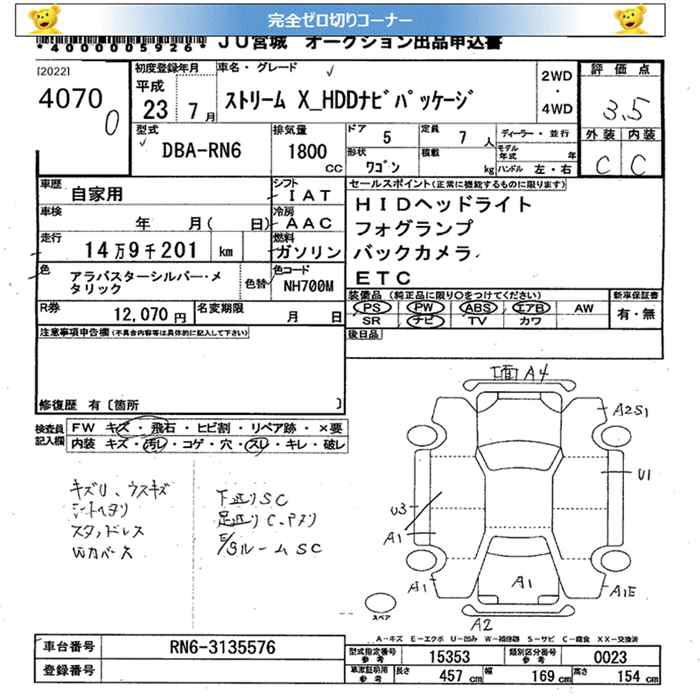 完全ゼロ切りコーナー
*4000005926* JU宮城 オークション出品申込書
[2022]
4070
0
初度登録年月
平成
23 7月
車名・グレード
ストリーム X_HDDナビパッケージ
2WD
・
4WD
評価点
3.5
外装 内装
C C
型式
DBA-RN6
排気量
1800
CC
ドア 5
定員 7 人
形状 ワゴン
積載 kg
ディーラー・並行
モデル年式 年
ハンドル 左・右
車歴 自家用
シフト IAT
車検 年 月( 日)
冷房 AAC
走行 14万9千201 km
燃料 ガソリン
色 アラバスターシルバー・メタリック
色替
色コード NH700M
R券 12,070円
名変期限 月 日
セールスポイント(正常に機能するものに限ります)
HIDヘッドライト
フォグランプ
バックカメラ
ETC
装備品(純正品に限り○をつけてください)
PS PW ABS エアB AW
SR ナビ TV カワ
新車保証書
有・無
後日品
注意事項申告欄(不具合内容等は具体的に記入して下さい)
修復歴 有〔箇所 〕
検査員記入欄
FW キズ・飛石・ヒビ割・リペア跡・×要
内装 キズ・汚レ・コゲ・穴・スレ・キレ・破レ
キズU、ウスキズ
シートヘタリ
スタッドレス
Wカバー大
下廻りSC
足廻りC、Pスリ
E/gルームSC
A4
A2S1
U1
U3
A1
A1
A1
A1E
A2
スペア
A-キズ E-エクボ U-凹み W-補修跡 S-サビ C-腐食 XX-交換済
車台番号 RN6-3135576
登録番号
型式指定番号 参考 15353
類別区分番号 参考 0023
車庫証明用 参考 長さ 457 cm 幅 169 cm 高さ 154 cm